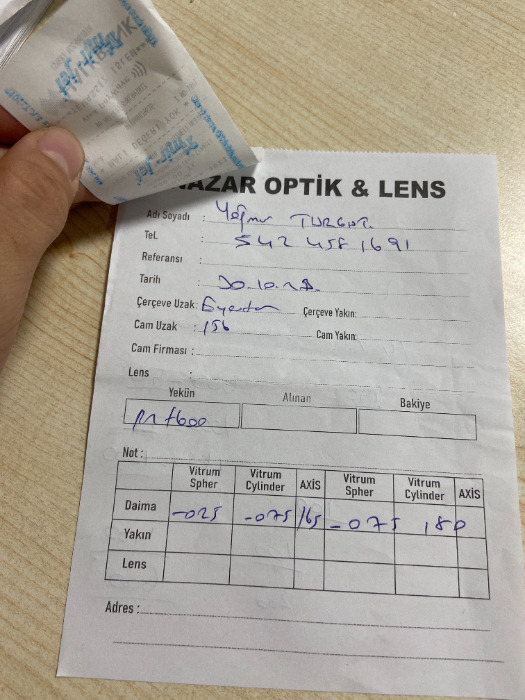 NAZAR OPTİK & LENS
Adı Soyadı : Yağmur TURGUT.
Tel. : 542 458 1691
Referansı :
Tarih :
Çerçeve Uzak: Çerçeve Yakın:
Cam Uzak : 156 Cam Yakın:
Cam Firması :
Lens :
Yekün Alınan Bakiye
Not :
Vitrum Spher Vitrum Cylinder AXİS Vitrum Spher Vitrum Cylinder AXİS
Daima -025 -075 165 -075 180
Yakın
Lens
Adres :